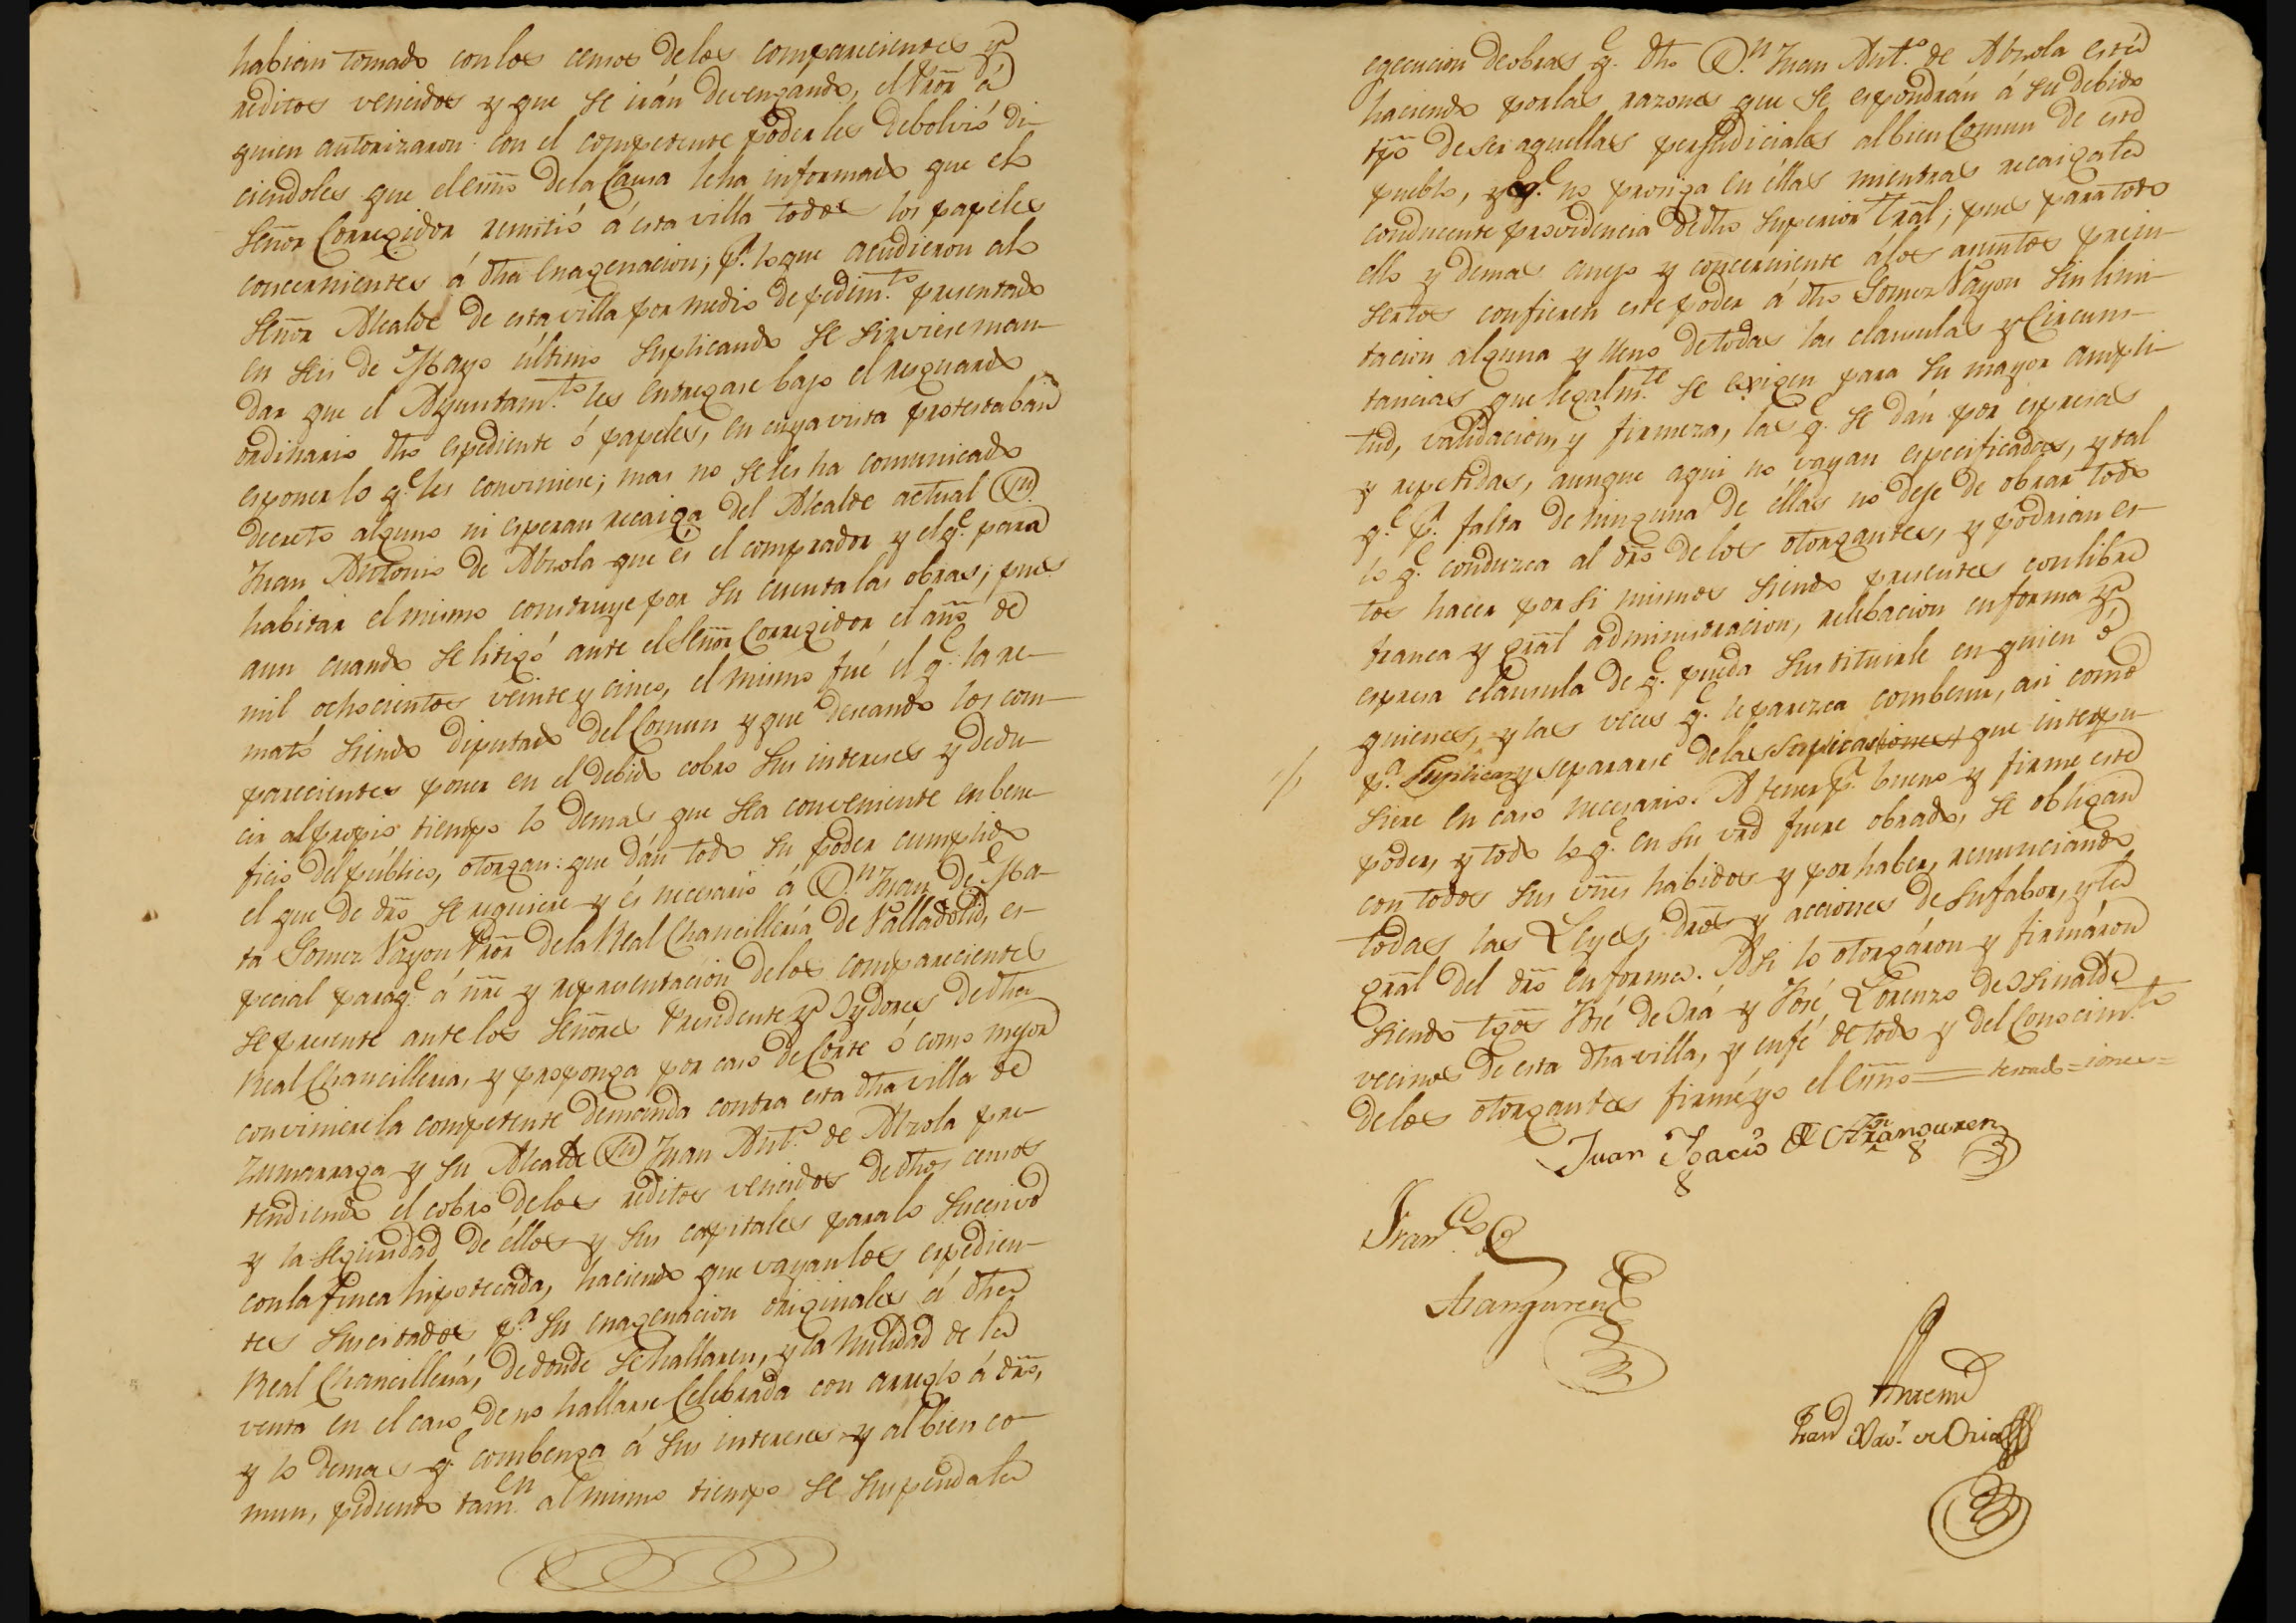 habian tomado con los censos de los comparecientes y
reditos vencidos y que se irán devengando, el Pror á
quien autorizaron con el competente poder les debolvió di-
ciendoles que el Essno de la Causa le ha informado que el
Señor Corregidor remitió á esta villa todos los papeles
concernientes á dha enagenacion; pr. lo que acudieron al
Señor Alcalde de esta villa por medio de pedimto. presentado
en seis de Mayo último suplicando se sirviese man-
dar que el Ayuntamto. les entregase bajo el resguardo
ordinario dho espediente ó papeles, en cuya vista protestaban
esponer lo qe. les conviniese; mas no se les ha comunicado
decreto alguno ni esperan recaiga del Alcalde actual Dn.
Juan Antonio de Alzola que és el comprador y el qe. para
habitar el mismo construye por su cuenta las obras; pues
aun cuando se litigó ante el Señor Corregidor el año de
mil ochocientos veinte y cinco, el mismo fué el qe. la re-
mató siendo diputado del Comun y que deseando los com-
parecientes poner en el debido cobro sus intereses y dedu-
cir al propio tiempo lo demas que sea conveniente en bene-
ficio del público, otorgan: que dán todo su poder cumplido
el que de dro se requiere y és necesario á Dn. Juan de Ma-
ta Gomez Vayon Pror de la Real Chancillería de Valladolid, es-
pecial para qe. á nre y representacion de los comparecientes
se presente ante los Señores Presidente y Oydores de dha
Real Chancilleria, y proponga por caso de Corte ó como mejor
conviniere la competente demanda contra esta dha villa de
Zumarraga y su Alcalde Dn Juan Anto. de Alzola pre-
tendiendo el cobro de los reditos vencidos de dhos censos
y la seguridad de éllos y sus capitales para lo sucesivo
con la finca hipotecada, haciendo que vayan los espedien-
tes suscitados pa. su enagenacion originales á dha
Real Chancillería, de donde se hallaren, y la nulidad de la
venta en el caso de no hallarse celebrada con arreglo á dro,
y lo demas qe. combenga á sus intereses y al bien co-
mun, pidiendo tamen. al mismo tiempo se suspenda la
egecucion de obras qe. dho Dn. Juan Anto. de Alzola está
haciendo por las razones que se espondrán á su debido
tpo de ser aquellas perjudiciales al bien Comun de este
pueblo, y qe. no prosiga en éllas mientras recaiga la
conducente providencia de dho Superior Tral; pues para todo
ello y demas anejo y concerniente á los asuntos prein-
sertos confieren este poder á dho Gomez Vayon sin limi-
tacion alguna y lleno de todas las clausulas y circuns-
tancias que legalmte. se exigen para su mayor ampli-
tud, validacion y firmeza, las qe. se dán por espresas
y repetidas, aunque aqui no vayan especificadas, y tal
qe. pr. falta de ninguna de éllas no deje de obrar todo
lo qe. conduzca al dro de los otorgantes, y podrian es-
tos hacer por si mismos siendo presentes con libre
franca y gral administracion, relebacion en forma y
espresa clausula de qe. pueda sustituirle en quien ó
quienes, y las veces qe. le parezca combenir, asi como
pa. suplicar y separarse de las suplicaciones que interpu-
siere en caso necesario. A tener pr. bueno y firme este
poder, y todo lo qe. en su vrd fuere obrado, se obligan
con todos sus vnes habidos y por haber, renunciando
todas las Leyes, dros y acciones de su fabor, y la
gral del dro en forma. Asi lo otorgáron y firmáron
siendo tgos José de Orá y José Lorenzo de Osinalde
vecinos de esta dha villa, y en fé de todo y del Conocimto.
de los otorgantes firmé yo el Essno = testado = iones =
Juan Ignacio de Aranguren
Franco. de
Aranguren
Ante mi
Juan Xavr. de Oria